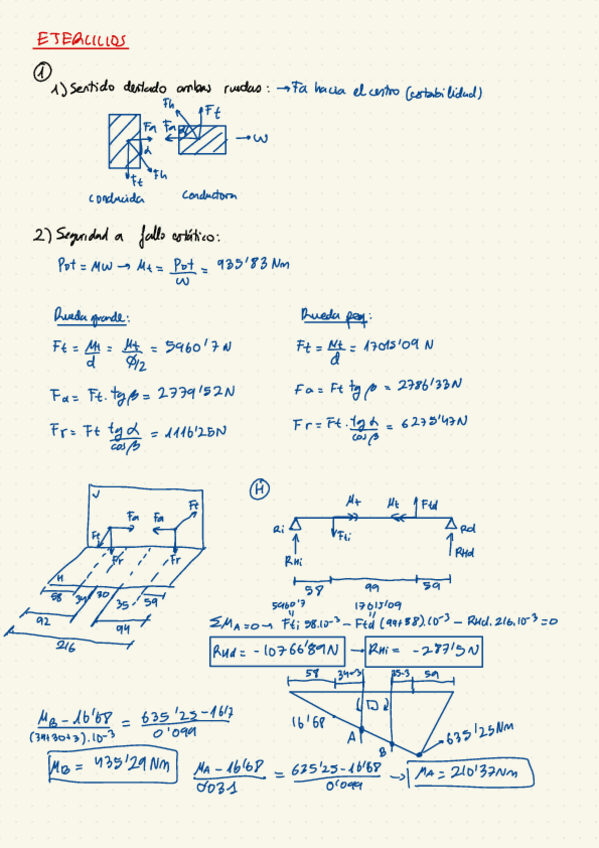 EJERCICIOS
1
1) Sentido dentado ambas ruedas: → Fa hacia el centro (estabilidad)
Fh Ft
Fa Fa β → ω
α
Ft Fh
Conducida Conductora
2) Seguridad a fallo estático:
Pot = Mω → Mt = Pot/ω = 935'83 Nm
Rueda grande: Rueda peq:
Ft = Mt/d = Mt/(Ø/2) = 5960'7 N
Ft = Mt/d = 17015'09 N
Fa = Ft. tg β = 2779'52N
Fa = Ft tg β = 2786'33N
Fr = Ft tg α/cos β = 1116'25N
Fr = Ft. tg α/cos β = 6275'47N
V
Ft Fa Fa Ft
Fr Fr
H
58 34 30 35 59
92 94
216
H
Mt Mt Ftd
Ri Fti Rd
RHi RHd
58 99 59
5960'7 17015'09
ΣMA=0 → Fti 58.10⁻³ - Ftd (99+58).10⁻³ - RHd. 216.10⁻³ = 0
RHd = -10766'89N → RHi = -287'5N
58 34-3 35-3 59
16'68
A B
635'25Nm
MB - 16'68/(34+30+3).10⁻³ = 635'25 - 16'7/0'099
MB = 435'29Nm
MA - 16'68/0'031 = 635'25 - 16'68/0'099 → MA = 210'37Nm